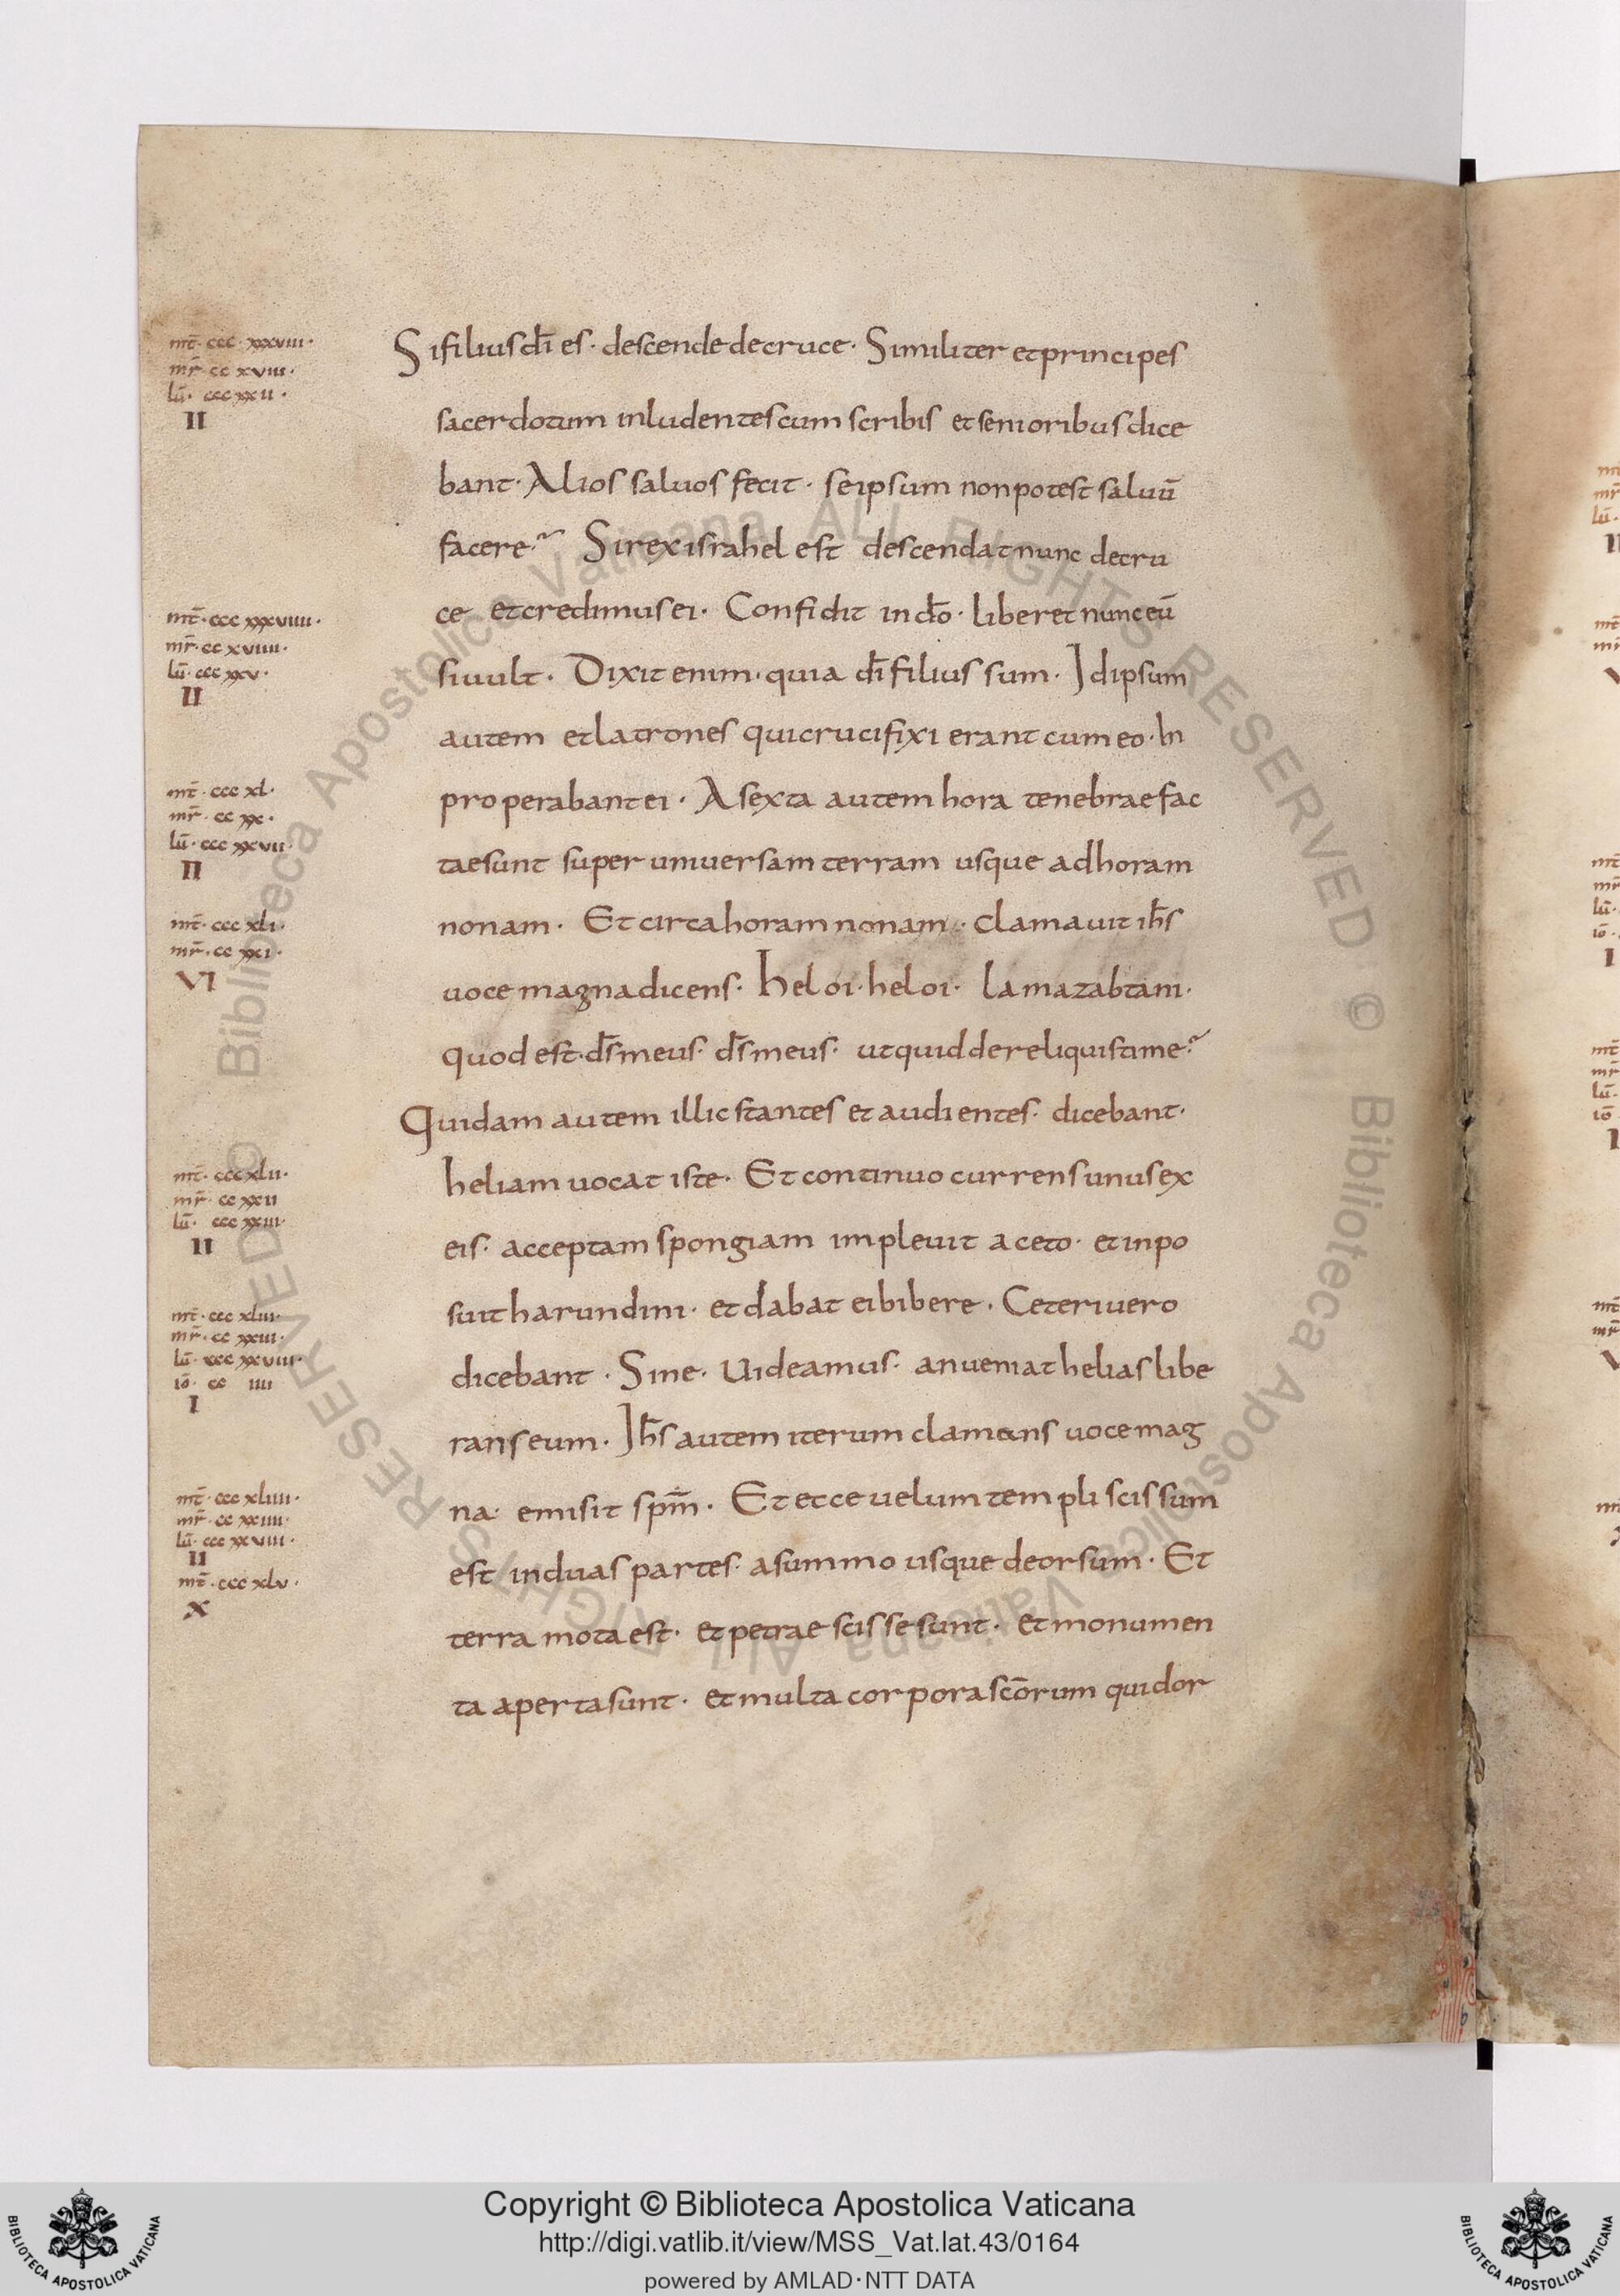 mt̄· ccc· xxxviii·
mr̄· cc xviii·
lū· ccc xxii·
II
Si filius dī es· descende de cruce· Similiter et principes
sacerdotum inludentes cum scribis et senioribus dice
bant· Alios saluos fecit· se ipsum non potest saluū
facere? Si rex israhel est descendat nunc de cru
mt̄· ccc xxxviiii·
mr̄· cc xviiii·
lū· ccc xxv·
II
ce et credimus ei· Confidit in dō· liberet nunc eū
si uult· Dixit enim· quia dī filius sum· Id ipsum
autem et latrones qui crucifixi erant cum eo· In
mt̄· ccc xl·
mr̄· cc xx·
lū· ccc xxvii·
II
properabant ei· A sexta autem hora tenebrae fac
tae sunt super uniuersam terram usque ad horam
mt̄· ccc xli·
mr̄· cc xxi·
VI
nonam· Et circa horam nonam· clamauit ih̄s
uoce magna dicens· heloi· heloi· lamazabtani·
quod est· ds̄ meus· ds̄ meus· ut quid dereliquisti me?
Quidam autem illic stantes et audientes· dicebant·
mt̄· ccc xlii·
mr̄· cc xxii
lū· ccc xxiii·
II
heliam uocat iste· Et continuo currens unus ex
eis· acceptam spongiam impleuit aceto· et inpo
suit harundini· et dabat ei bibere· Ceteri uero
mt̄· ccc xliii·
mr̄· cc xxiii·
lū· ccc xxviii·
iō· cc iiii
I
dicebant· Sine· Uideamus· an ueniat helias libe
rans eum· Ih̄s autem iterum clamans uoce mag
mt̄· ccc xliiii·
mr̄· cc xxiiii·
lū· ccc xxviiii·
II
na· emisit spm̄· Et ecce uelum templi scissum
mt̄· ccc xlv·
X
est in duas partes· a summo usque deorsum· Et
terra mota est· et petrae scisse sunt· et monumen
ta aperta sunt· et multa corpora scōrum qui dor
© Biblioteca Apostolica Vaticana ALL RIGHTS RESERVED
© Biblioteca Apostolica Vaticana ALL RIGHTS RESERVED
Copyright © Biblioteca Apostolica Vaticana
http://digi.vatlib.it/view/MSS_Vat.lat.43/0164
powered by AMLAD·NTT DATA
BIBLIOTECA APOSTOLICA VATICANA
BIBLIOTECA APOSTOLICA VATICANA